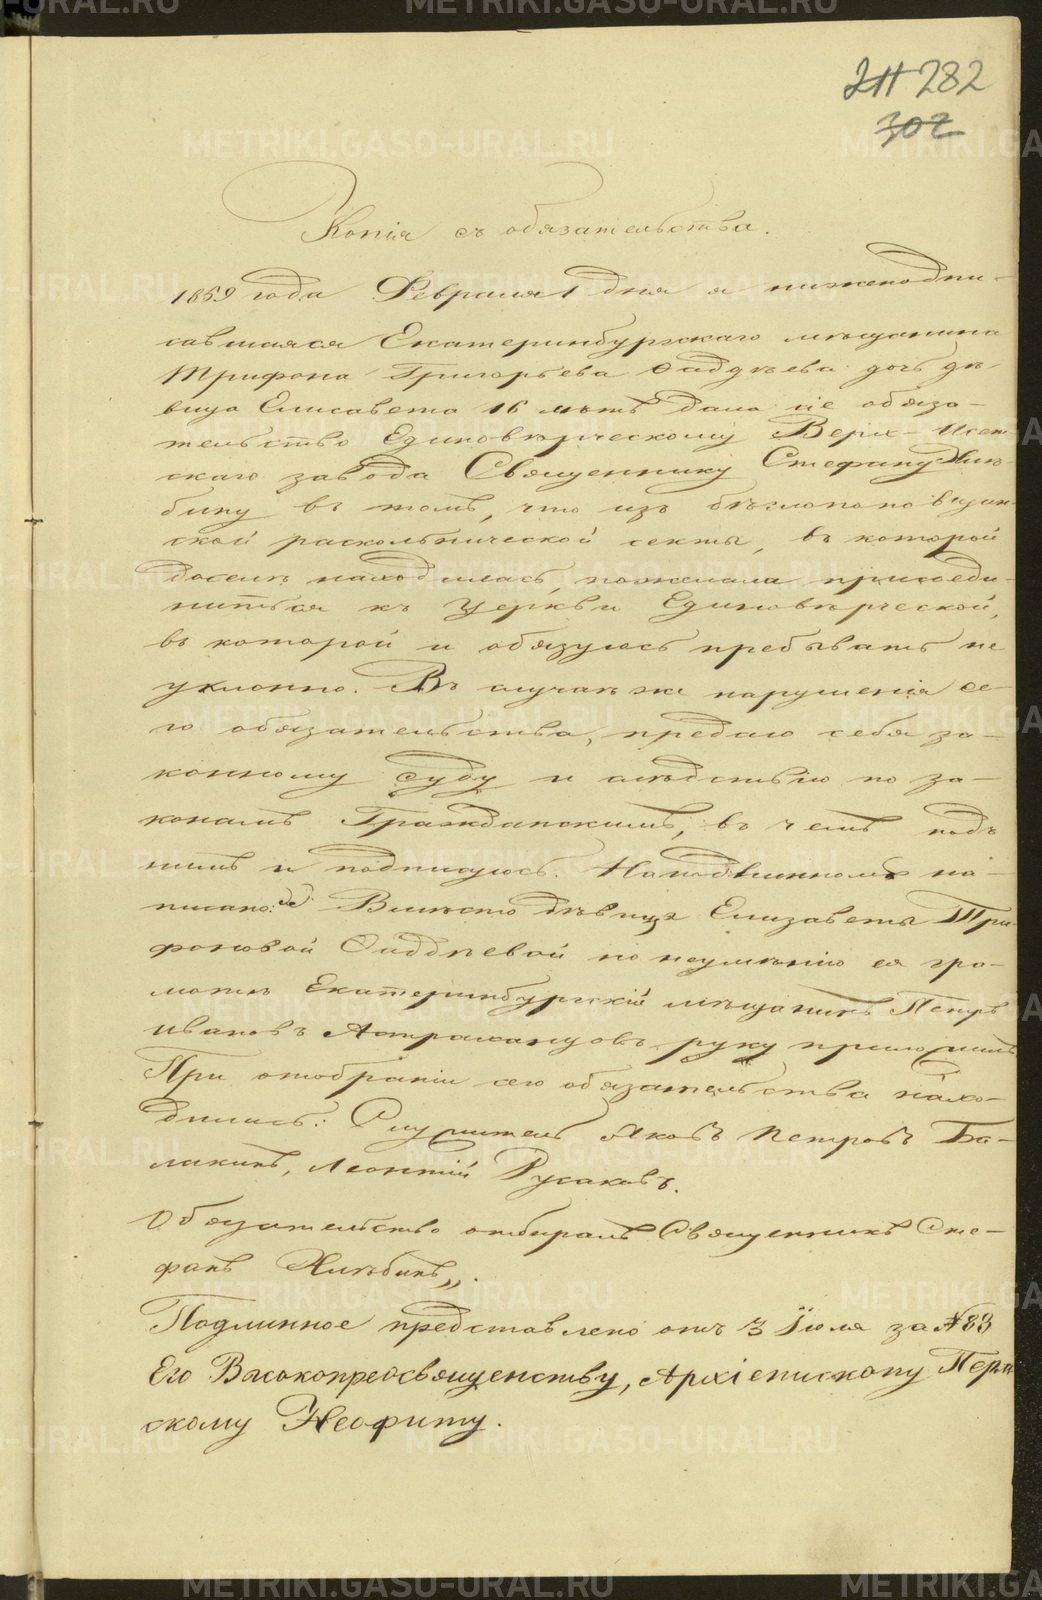 211 282
302
Копія съ обязательства.
1859 года Февраля 1 дня я нижеподпи-
савшаяся Екатеринбургскаго мѣщанина
Трифона Григорьева Фаддѣева дочь дѣ-
вица Елисавета 16 лѣтъ дала сіе обяза-
тельство Единовѣрческому Верхъ-Исет-
скаго завода Священнику Стефану Хлѣ-
бину въ томъ, что изъ бѣглопоповщин-
ской раскольнической секты, въ которой
доселѣ находилась, пожелала присоеди-
ниться къ Церкви Единовѣрческой,
въ которой и обязуюсь пребывать не
уклонно. Въ случаѣ же нарушенія се-
го обязательства, предаю себя за-
конному суду и слѣдствію по за-
конамъ Гражданскимъ, въ чемъ подъ
симъ и подписуюсь. На подлинномъ на-
писано: Вмѣсто дѣвицы Елизаветы Три-
фоновой Фаддѣевой по неумѣнію ея гра-
мотѣ Екатеринбургскій мѣщанинъ Петръ
Ивановъ Астраханцовъ руку приложилъ
При отобраніи сего обязательства нахо-
дились: Служитель Яковъ Петровъ Ба-
лакинъ, Леонтій Русаковъ.
Обязательство отбиралъ Священникъ Сте-
фанъ Хлѣбинъ„.
Подлинное представлено отъ 3 Іюля за №83
Его Высокопреосвященству, Архіепископу Перм-
скому Неофиту.